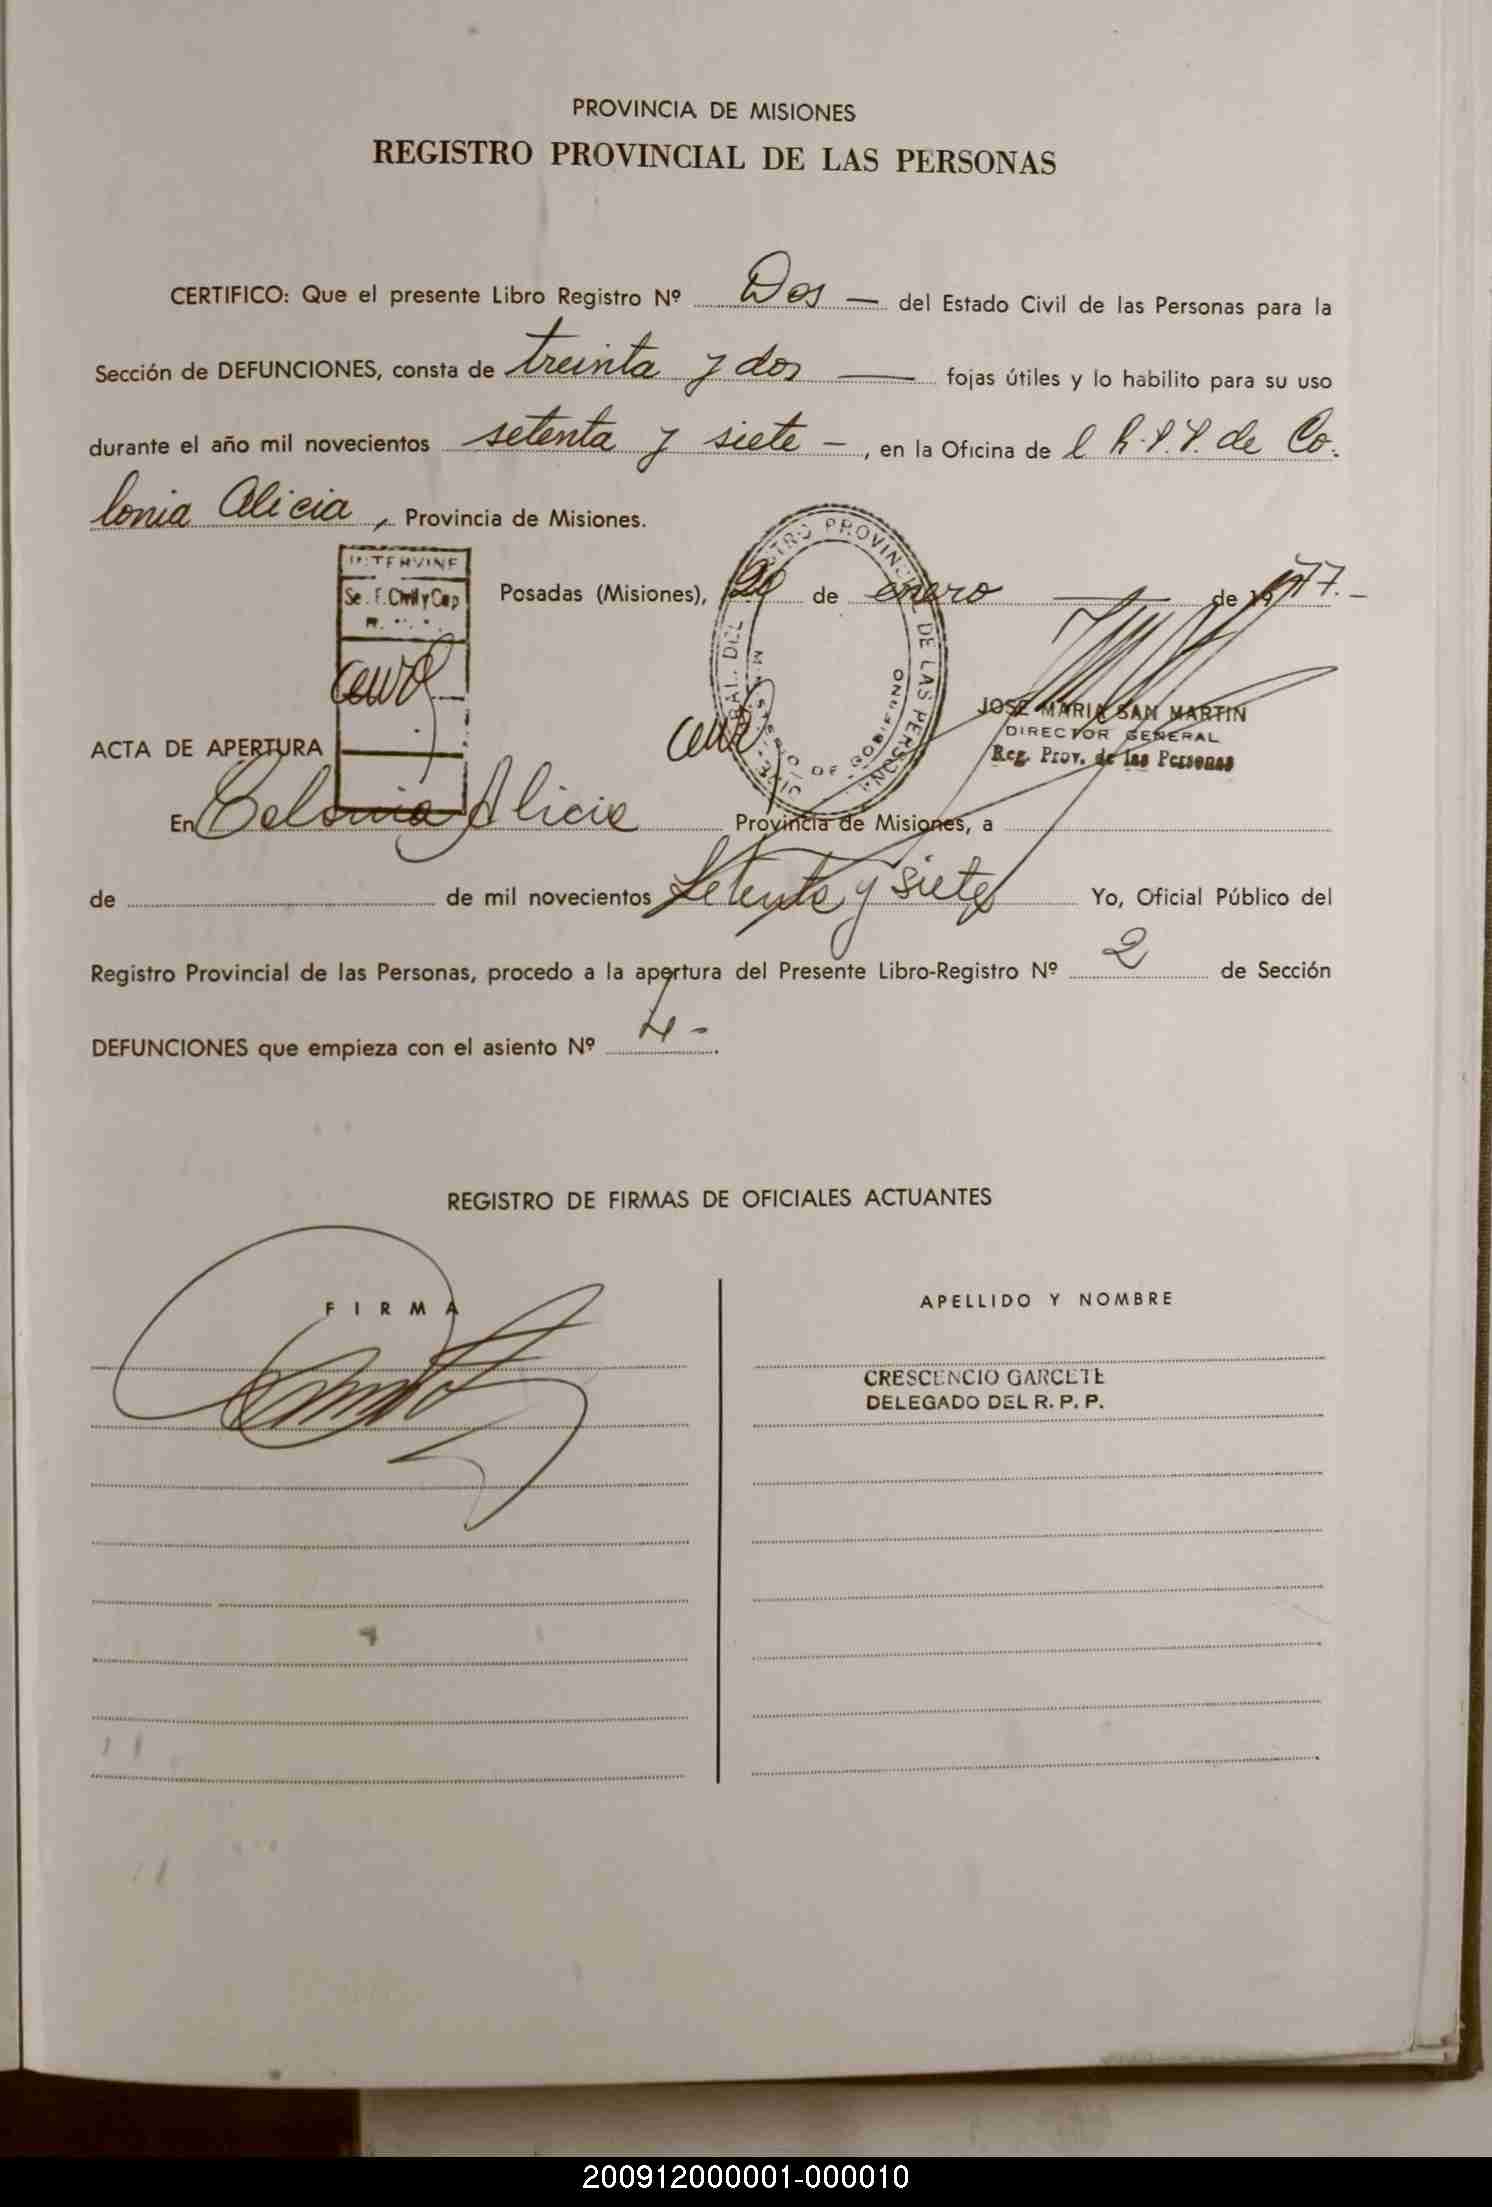 PROVINCIA DE MISIONES
REGISTRO PROVINCIAL DE LAS PERSONAS
CERTIFICO: Que el presente Libro Registro Nº Dos — del Estado Civil de las Personas para la
Sección de DEFUNCIONES, consta de treinta y dos — fojas útiles y lo habilito para su uso
durante el año mil novecientos setenta y siete —, en la Oficina de l R.P.P. de Co.
lonia Alicia, Provincia de Misiones.
INTERVINE
Se. F. Civil y Cap
Posadas (Misiones), 20 de enero — de 1977.-
REGISTRO PROVINCIAL DE LAS PERSONAS
MINISTERIO DE GOBIERNO
JOSE MARIA SAN MARTIN
DIRECTOR GENERAL
Reg. Prov. de las Personas
ACTA DE APERTURA
En Colonia Alicia Provincia de Misiones, a
de de mil novecientos Setenta y siete Yo, Oficial Público del
Registro Provincial de las Personas, procedo a la apertura del Presente Libro-Registro Nº 2 de Sección
DEFUNCIONES que empieza con el asiento Nº 4-.
REGISTRO DE FIRMAS DE OFICIALES ACTUANTES
FIRMA
APELLIDO Y NOMBRE
CRESCENCIO GARCETE
DELEGADO DEL R. P. P.
200912000001-000010